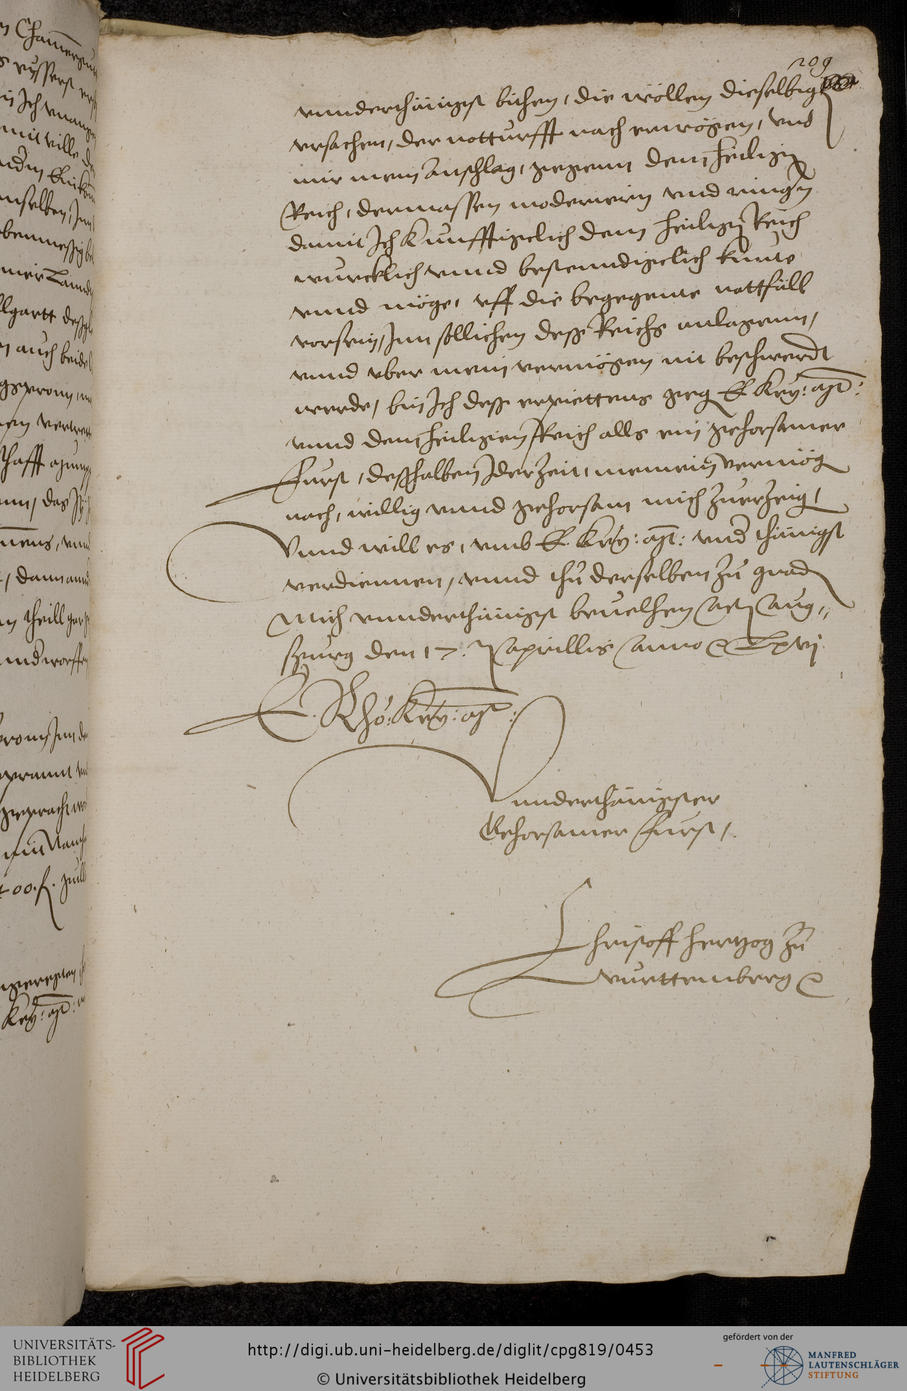 209
vnnderthänigst bithen, die wöllen dieselbige
vrsachen, der notturfft nach erwögen, vnd
mir mein Anschlag, gegenn dem heiligen
Reich, dermassen moderiern vnd ringern
damit Ich kunfftigclich dem heiligen Reich
wurcklich vnnd bestenndigclich kunte
vnnd möge, vff die begegente nottfäll
vorsein, Inn söllichen dess Reichs anlagenn,
vnnd vber mein vermögen nit beschwerdt
werde, bin Ich dess erpiettens gegen E. Key: Mt:
vnnd dem heiligen Reich alls ein gehorsamer
Furst, desshalben Jderzeit, meinem vermögen
nach, willig vnnd gehorsam mich zuerzeigen,
Vnnd will es, vmb E. Key: Mt: vnderthänigst
verdiennen, vnnd thu derselben zu gnaden
Mich vnnderthänigst beuelhen Actum Aug,,
spurg den 17. Aprillis Anno &c Lxvj
E. Rhö: Key: Mt:
Vnnderthänigster
Gehorsamer Furst,
Christoff Hertzog zu
Wurttemberg &c
UNIVERSITÄTS-
BIBLIOTHEK
HEIDELBERG
http://digi.ub.uni-heidelberg.de/diglit/cpg819/0453
© Universitätsbibliothek Heidelberg
gefördert von der
MANFRED
LAUTENSCHLÄGER
STIFTUNG